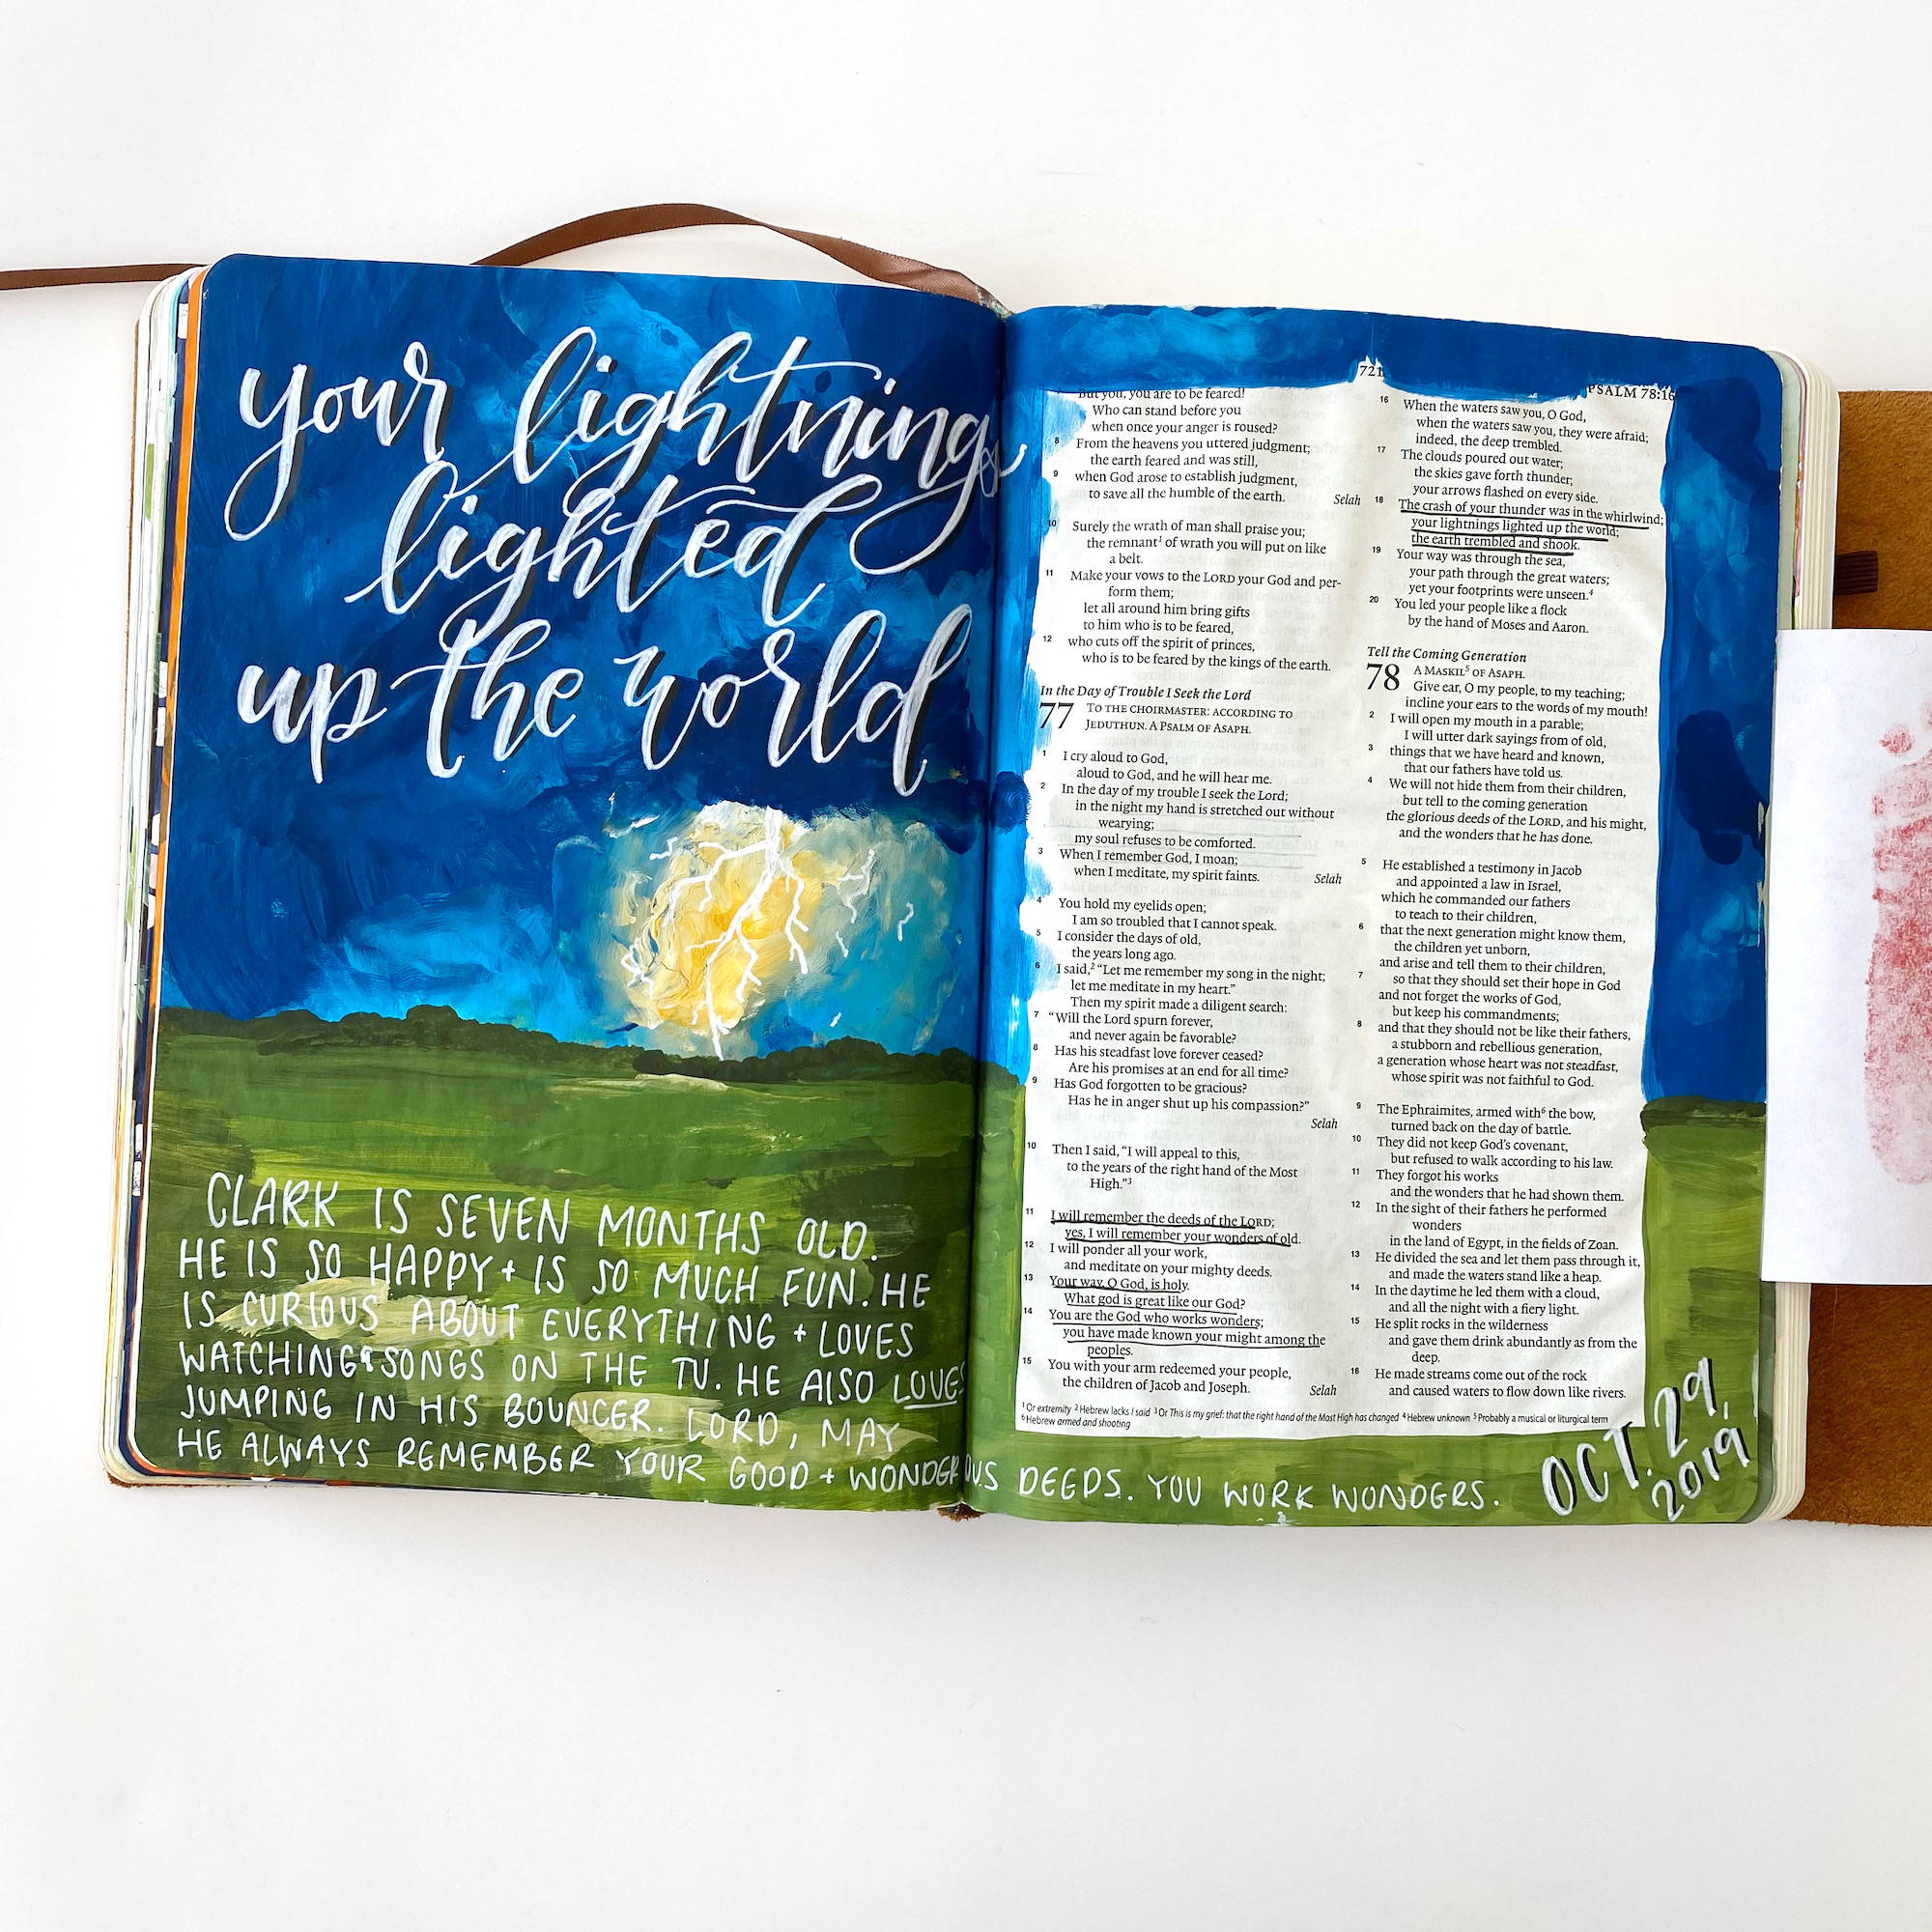 your lightnings
lighted
up the world
CLARK IS SEVEN MONTHS OLD.
HE IS SO HAPPY + IS SO MUCH FUN. HE
IS CURIOUS ABOUT EVERYTHING + LOVES
WATCHING & SONGS ON THE TV. HE ALSO LOVES
JUMPING IN HIS BOUNCER. LORD, MAY
HE ALWAYS REMEMBER YOUR GOOD + WONDEROUS DEEDS. YOU WORK WONDERS.
OCT. 29,
2019
721
PSALM 78:16
But you, you are to be feared!
Who can stand before you
when once your anger is roused?
8 From the heavens you uttered judgment;
the earth feared and was still,
9 when God arose to establish judgment,
to save all the humble of the earth. Selah
10 Surely the wrath of man shall praise you;
the remnant¹ of wrath you will put on like
a belt.
11 Make your vows to the LORD your God and per-
form them;
let all around him bring gifts
to him who is to be feared,
12 who cuts off the spirit of princes,
who is to be feared by the kings of the earth.
In the Day of Trouble I Seek the Lord
77 TO THE CHOIRMASTER: ACCORDING TO
JEDUTHUN. A PSALM OF ASAPH.
1 I cry aloud to God,
aloud to God, and he will hear me.
2 In the day of my trouble I seek the Lord;
in the night my hand is stretched out without
wearying;
my soul refuses to be comforted.
3 When I remember God, I moan;
when I meditate, my spirit faints. Selah
4 You hold my eyelids open;
I am so troubled that I cannot speak.
5 I consider the days of old,
the years long ago.
6 I said,² “Let me remember my song in the night;
let me meditate in my heart.”
Then my spirit made a diligent search:
7 “Will the Lord spurn forever,
and never again be favorable?
8 Has his steadfast love forever ceased?
Are his promises at an end for all time?
9 Has God forgotten to be gracious?
Has he in anger shut up his compassion?”
Selah
10 Then I said, “I will appeal to this,
to the years of the right hand of the Most
High.”³
11 I will remember the deeds of the LORD;
yes, I will remember your wonders of old.
12 I will ponder all your work,
and meditate on your mighty deeds.
13 Your way, O God, is holy.
What god is great like our God?
14 You are the God who works wonders;
you have made known your might among the
peoples.
15 You with your arm redeemed your people,
the children of Jacob and Joseph. Selah
16 When the waters saw you, O God,
when the waters saw you, they were afraid;
indeed, the deep trembled.
17 The clouds poured out water;
the skies gave forth thunder;
your arrows flashed on every side.
18 The crash of your thunder was in the whirlwind;
your lightnings lighted up the world;
the earth trembled and shook.
19 Your way was through the sea,
your path through the great waters;
yet your footprints were unseen.⁴
20 You led your people like a flock
by the hand of Moses and Aaron.
Tell the Coming Generation
78 A MASKIL⁵ OF ASAPH.
Give ear, O my people, to my teaching;
incline your ears to the words of my mouth!
2 I will open my mouth in a parable;
I will utter dark sayings from of old,
3 things that we have heard and known,
that our fathers have told us.
4 We will not hide them from their children,
but tell to the coming generation
the glorious deeds of the LORD, and his might,
and the wonders that he has done.
5 He established a testimony in Jacob
and appointed a law in Israel,
which he commanded our fathers
to teach to their children,
6 that the next generation might know them,
the children yet unborn,
and arise and tell them to their children,
7 so that they should set their hope in God
and not forget the works of God,
but keep his commandments;
8 and that they should not be like their fathers,
a stubborn and rebellious generation,
a generation whose heart was not steadfast,
whose spirit was not faithful to God.
9 The Ephraimites, armed with⁶ the bow,
turned back on the day of battle.
10 They did not keep God's covenant,
but refused to walk according to his law.
11 They forgot his works
and the wonders that he had shown them.
12 In the sight of their fathers he performed
wonders
in the land of Egypt, in the fields of Zoan.
13 He divided the sea and let them pass through it,
and made the waters stand like a heap.
14 In the daytime he led them with a cloud,
and all the night with a fiery light.
15 He split rocks in the wilderness
and gave them drink abundantly as from the
deep.
16 He made streams come out of the rock
and caused waters to flow down like rivers.
¹ Or extremity ² Hebrew lacks I said ³ Or This is my grief: that the right hand of the Most High has changed ⁴ Hebrew unknown ⁵ Probably a musical or liturgical term
⁶ Hebrew armed and shooting